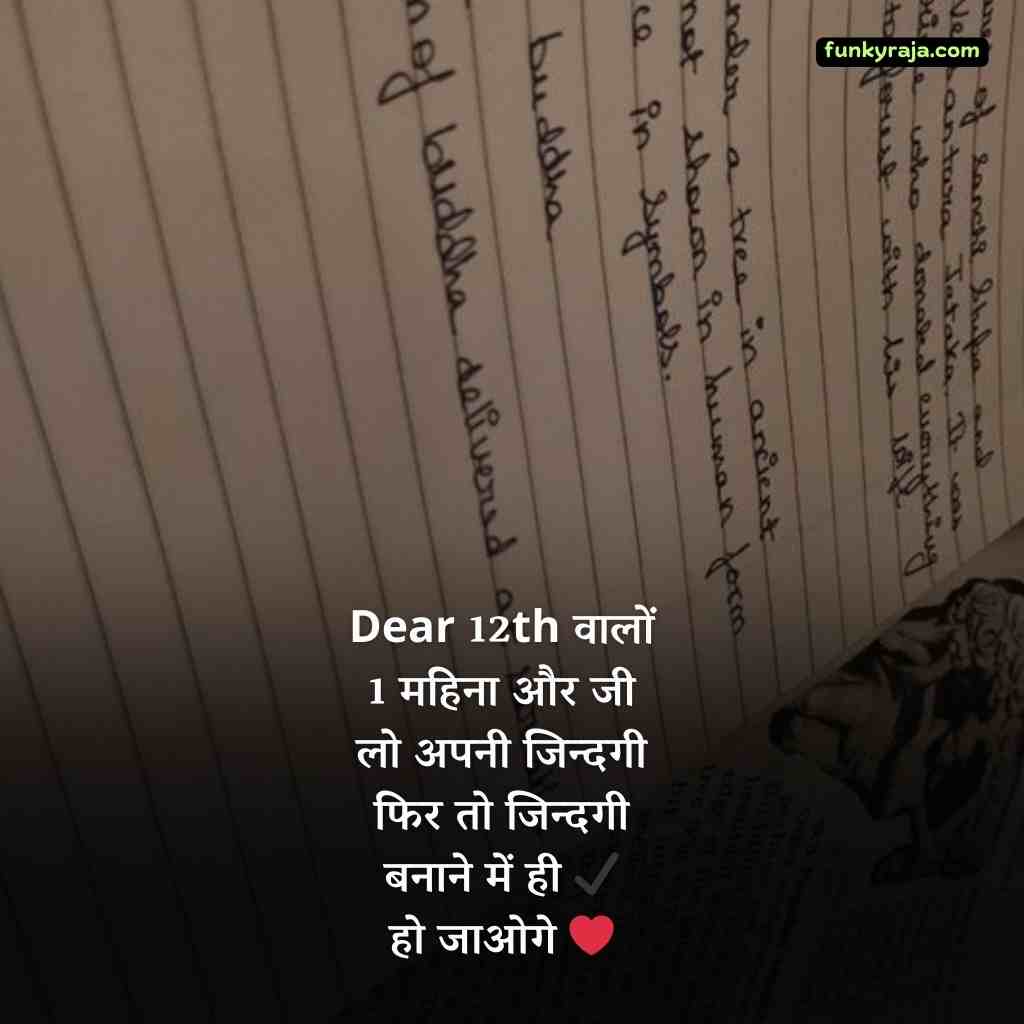 funkyraja.com
of Sanchi Stupa and
Jataka. It was
who donated everything
to forest with his wife
a tree in ancient
not shown in human form
in Symbols.
buddha
of buddha delivered a
Dear 12th वालों
1 महिना और जी
लो अपनी जिन्दगी
फिर तो जिन्दगी
बनाने में ही ✓
हो जाओगे ❤️